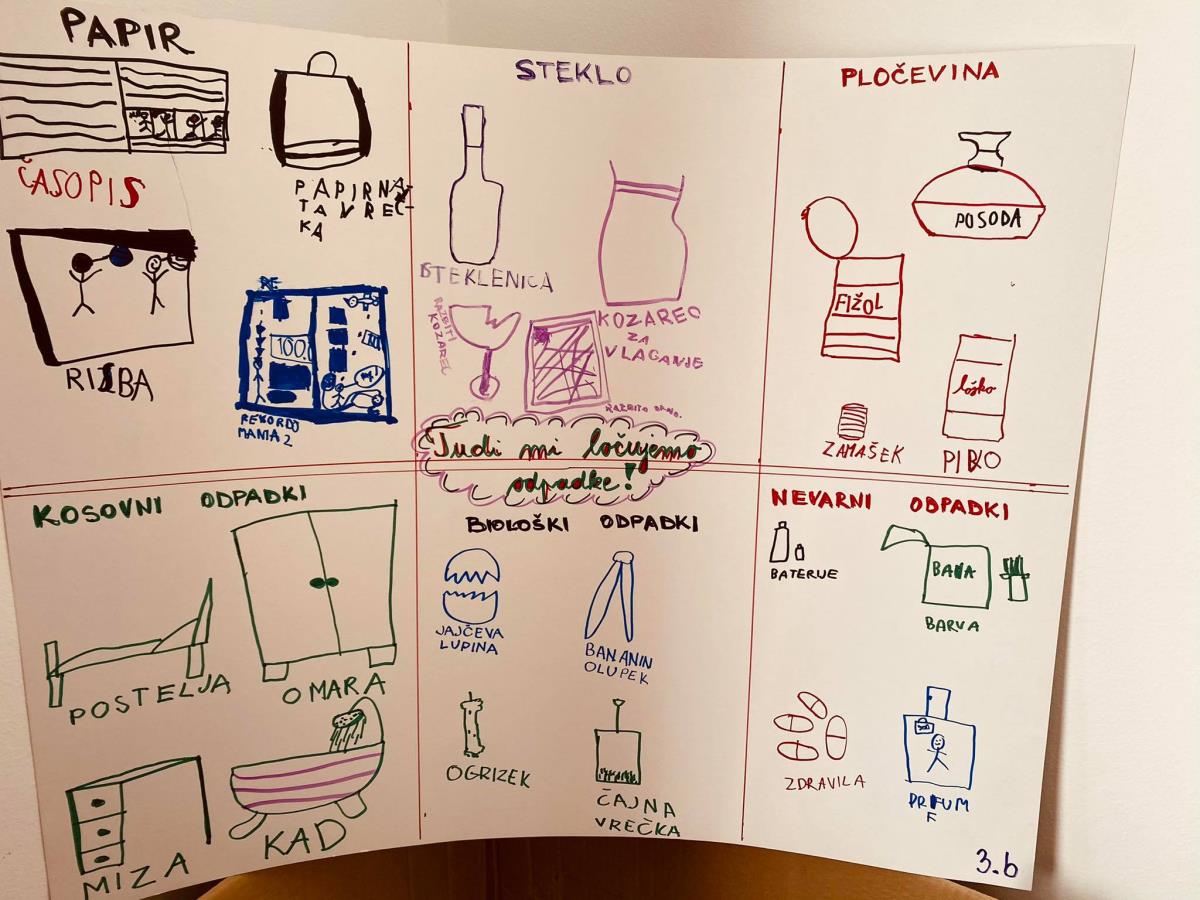 PAPIR
ČASOPIS
PAPIRNA
TA VREČ-
KA
RISBA
RE
100.
REKORDO
MANIA 2
STEKLO
STEKLENICA
KOZAREC
ZA
VLAGANJE
RAZBITI
KOZAREC
PLOČEVINA
POSODA
FIŽOL
loško
ZAMAŠEK
PIVO
Tudi mi ločujemo
odpadke!
KOSOVNI ODPADKI
POSTELJA
OMARA
MIZA
KAD
BIOLOŠKI ODPADKI
JAJČEVA
LUPINA
BANANIN
OLUPEK
OGRIZEK
ČAJNA
VREČKA
NEVARNI ODPADKI
BATERIJE
BARVA
BARVA
ZDRAVILA
PRFUM
E
3.b